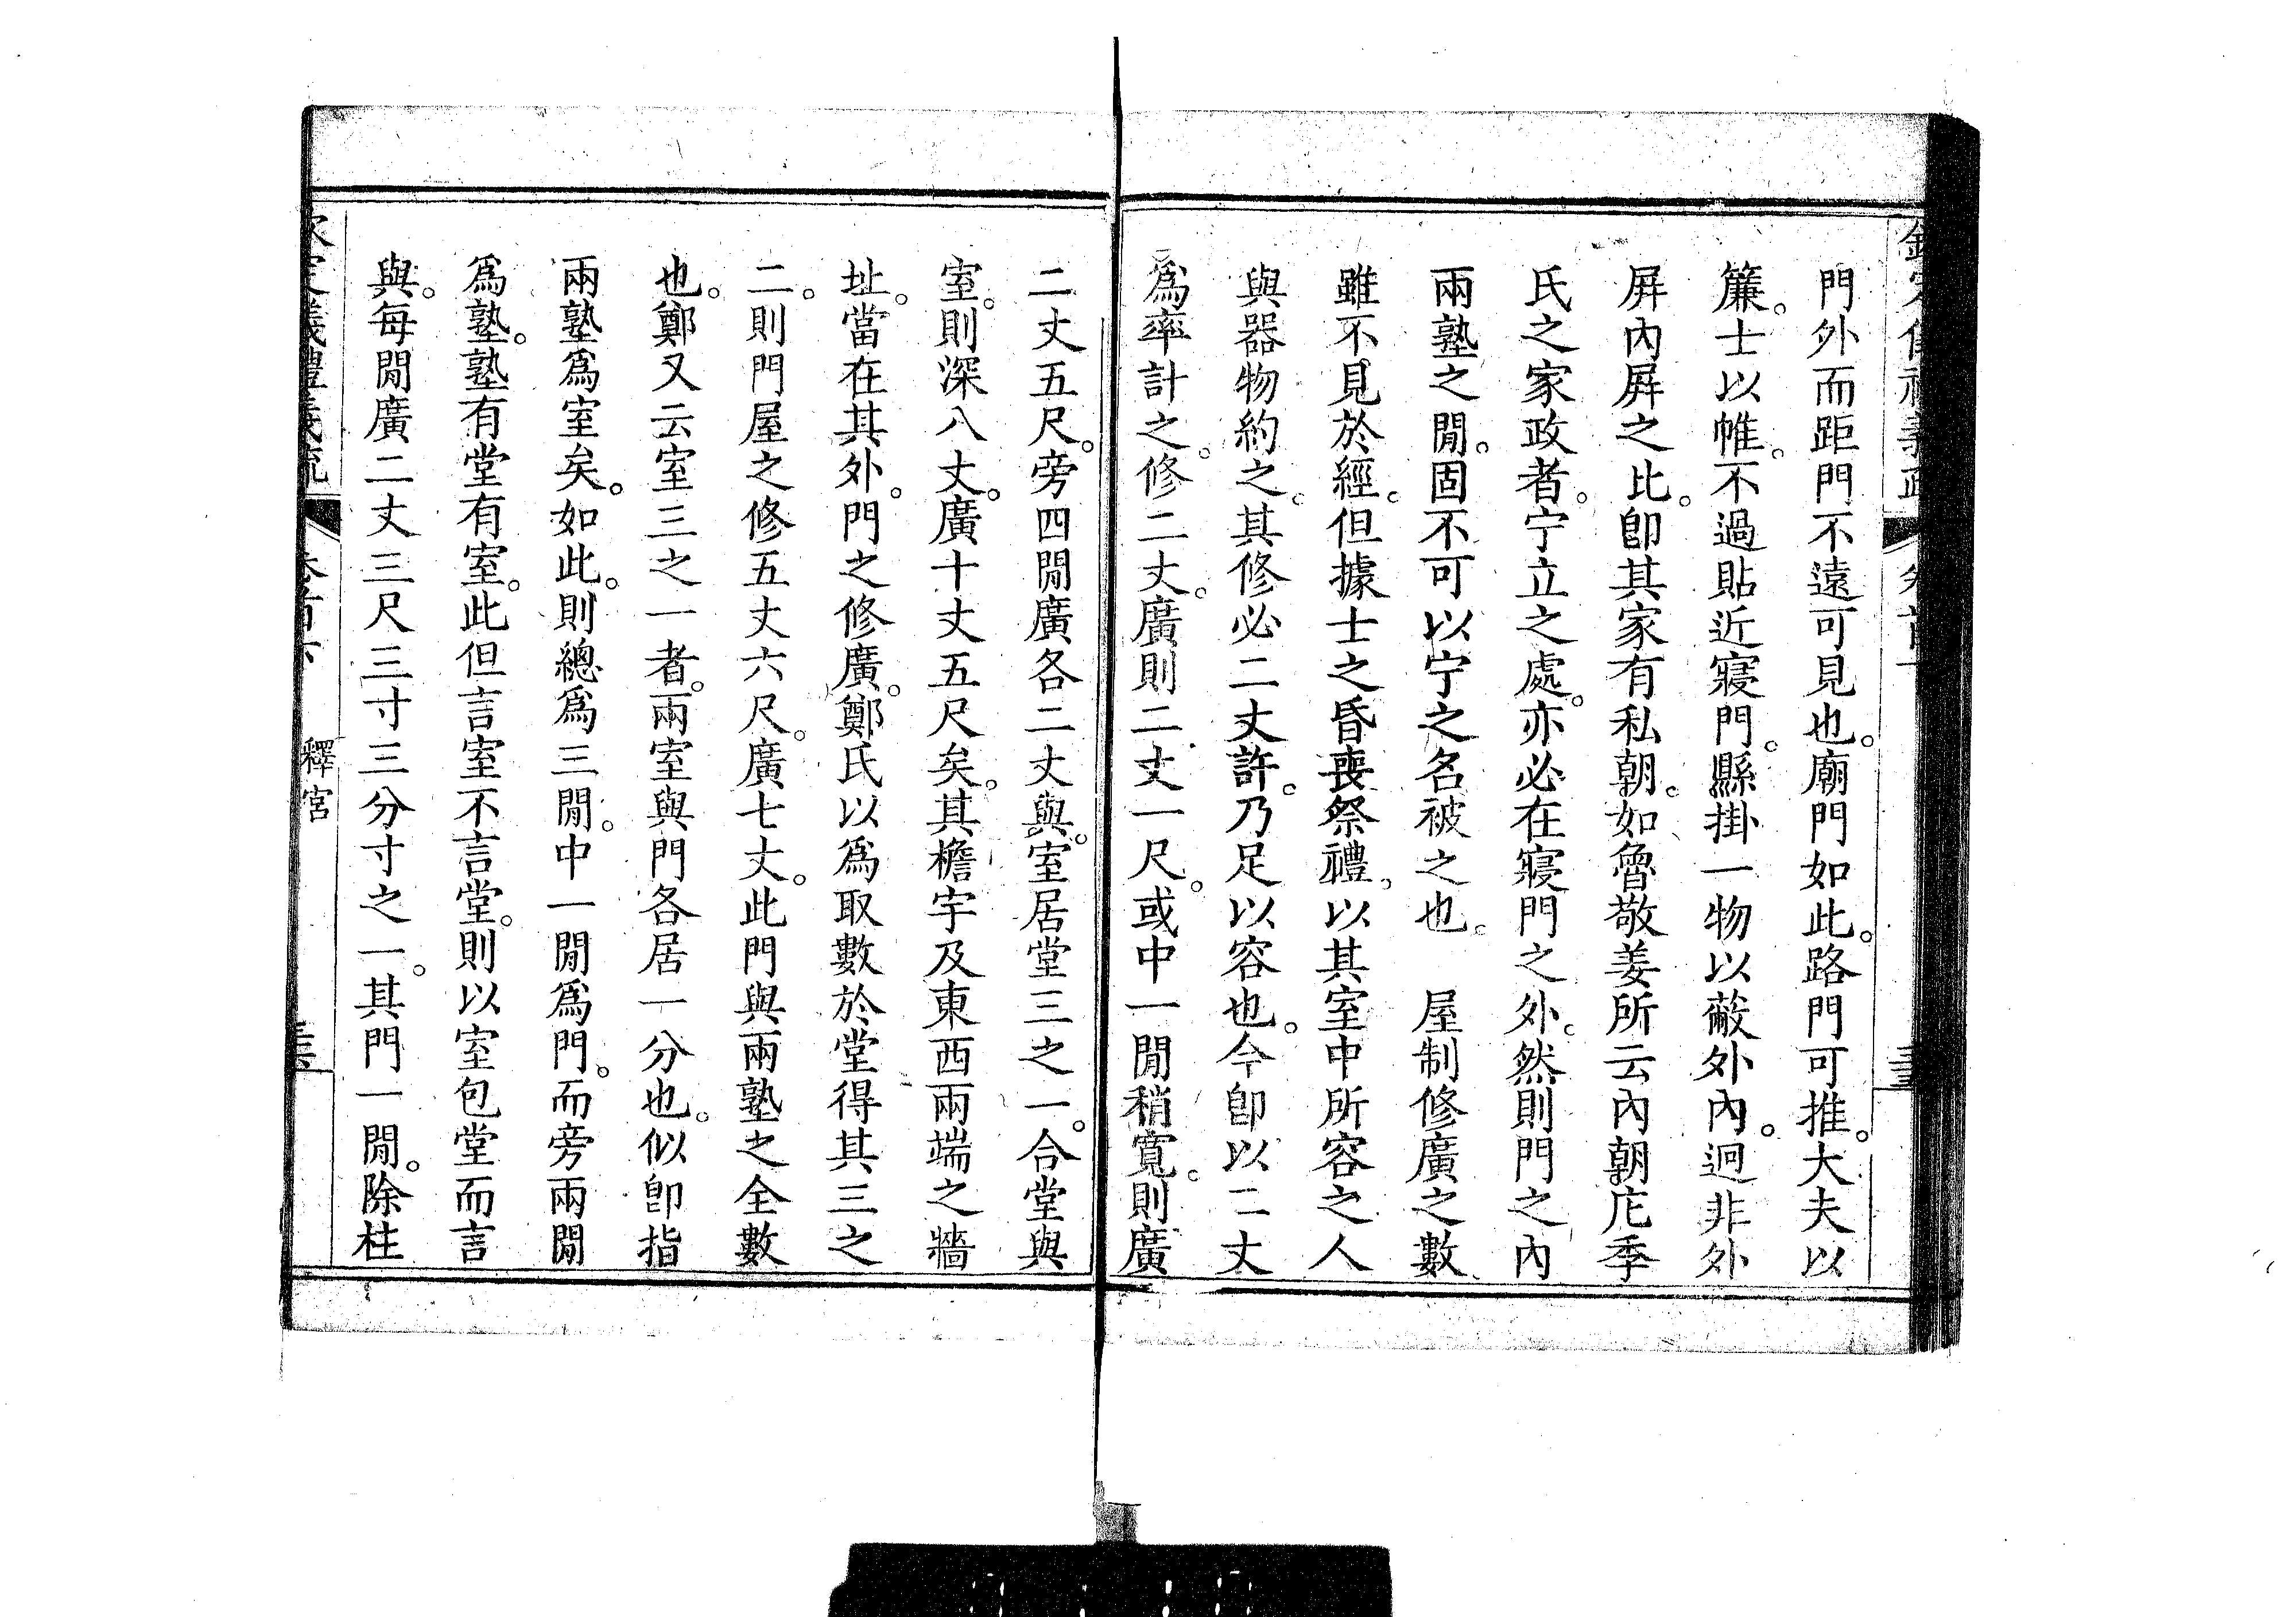 門外而距門不遠可見也。廟門如此。路門可推。大夫以
簾。士以帷。不過貼近寢門。縣掛一物以蔽外內。迥非外
屛內屛之比。卽其家有私朝。如魯敬姜所云內朝庀季
氏之家政者。宁立之處。亦必在寢門之外。然則門之內
兩塾之閒。固不可以宁之名被之也。　屋制修廣之數
雖不見於經。但據士之昏喪祭禮。以其室中所容之人
與器物約之。其修必二丈許。乃足以容也。今卽以二丈
爲率計之。修二丈。廣則二丈一尺。或中一閒稍寬。則廣
二丈五尺。旁四閒廣各二丈與。室居堂三之一。合堂與
室。則深八丈。廣十丈五尺矣。其檐宇及東西兩端之牆
址。當在其外。門之修廣。鄭氏以爲取數於堂得其三之
二。則門屋之修五丈六尺。廣七丈。此門與兩塾之全數
也。鄭又云室三之一者。兩室與門各居一分也。似卽指
兩塾爲室矣。如此。則總爲三閒。中一閒爲門。而旁兩閒
爲塾。塾有堂有室。此但言室不言堂。則以室包堂而言
與。每閒廣二丈三尺三寸三分寸之一。其門一閒。除柱
釋宮